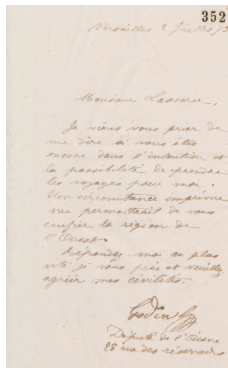 352
Versailles 2 Juillet 73
Monsieur
Je viens vous prier de
me dire si vous êtes
encore dans l'intention et
la possibilité de prendre
les voyages pour moi.
Une circonstance imprévue
me permettrait de vous
confier la région de
l'Ouest.
Répondez moi au plus
vite je vous prie et veuillez
agréer mes civilités.
Godin
Député de l'Aisne
28 rue des réservoirs